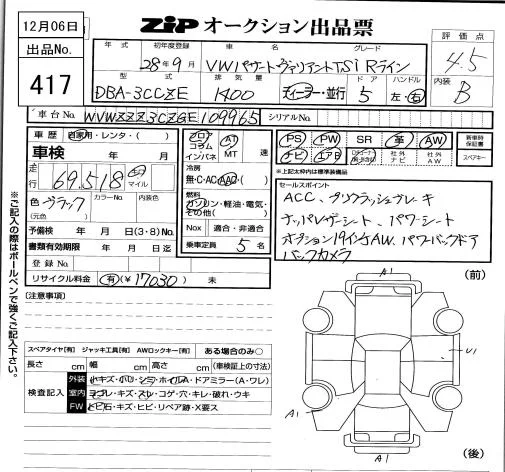 12月06日
ZiP オークション出品票
出品No.
417
年式 初年度登録 車名 グレード
28年9月 VWパサートヴァリアントTSi Rライン
評価点
4.5
型式 排気量 ドア ハンドル
DBA-3CCZE 1400 ディーラー・並行 5 左・右
内装
B
車台No. WVWZZZ3CZGE109965 シリアルNo.
車歴 自家用・レンタ・( )
車検 年 月
走行 69,518 キロ マイル
色 ブラック カラーNo. 内装色
(元色)
予備検 年 月 日(3・8)No.
書類有効期限 年 月 日迄
登録No.
リサイクル料金 有(¥17030) 未
フロア コラム インパネ AT MT 速
冷房
無・C・AC・AAC・( )
燃料
ガソリン・軽油・電気・その他( )
Nox 適合・非適合
乗車定員 5 名
PS PW SR 革 AW
ナビ エアB 社外ナビ 社外AW
新車時保証書
スペアキー
※上記太わ内は標準装備品
セールスポイント
ACC、プリクラッシュブレーキ
ナッパレザーシート、パワーシート
オプション19インチAW、パワーバックドア
バックカメラ
※ご記入の際はボールペンで強くご記入下さい。
[注意事項]
スペアタイヤ[有] ジャッキ工具[有] AWロックキー[有] ある場合のみ○
長さ cm 幅 cm 高さ cm (車検証上の寸法)
検査記入
外装 小キズ・ホリ・シミ・ホイルA・ドアミラー(A・ワレ)
室内 ヨゴレ・キズ・スレ・コゲ・穴・キレ・破れ・ウキ
FW トビ石・キズ・ヒビ・リペア跡・X要ス
(前)
A1
U1
A1
A1
(後)